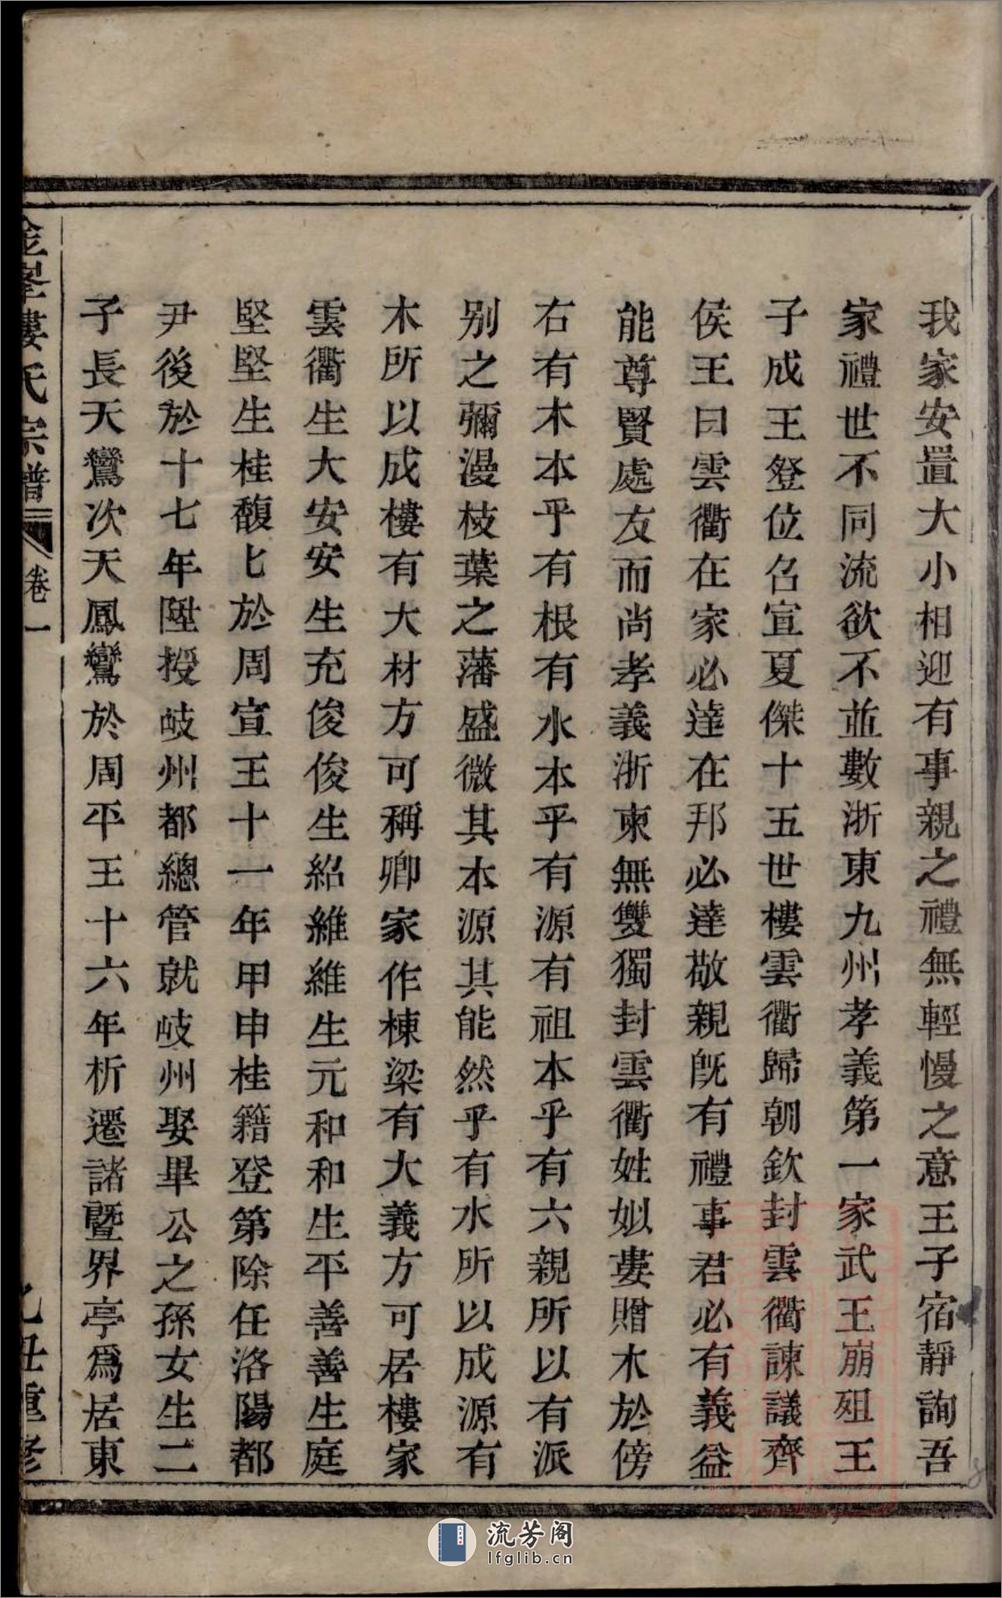 我家安置大小相迎有事親之禮無輕慢之意王子宿靜詢吾
家禮世不同流欲不並數浙東九州孝義第一家武王崩殂王
子成王登位召宣夏傑十五世樓雲衢歸朝欽封雲衢諫議齊
侯王曰雲衢在家必達在邦必達敬親旣有禮事君必有義益
能尊賢處友而尚孝義浙東無雙獨封雲衢姓姒婁贈木於傍
右有木本乎有根有水本乎有源有祖本乎有六親所以有派
別之彌漫枝葉之藩盛微其本源其能然乎有水所以成源有
木所以成樓有大材方可稱卿家作棟梁有大義方可居樓家
雲衢生大安安生充俊俊生紹維維生元和和生平善善生庭
堅堅生桂馥七於周宣王十一年甲申桂籍登第除任洛陽都
尹後於十七年陞授岐州都總管就岐州娶畢公之孫女生二
子長天鸞次天鳳鸞於周平王十六年析遷諸暨界亭爲居東
金峯樓氏宗譜 卷一 乙丑重修
流芳阁
lfglib.cn